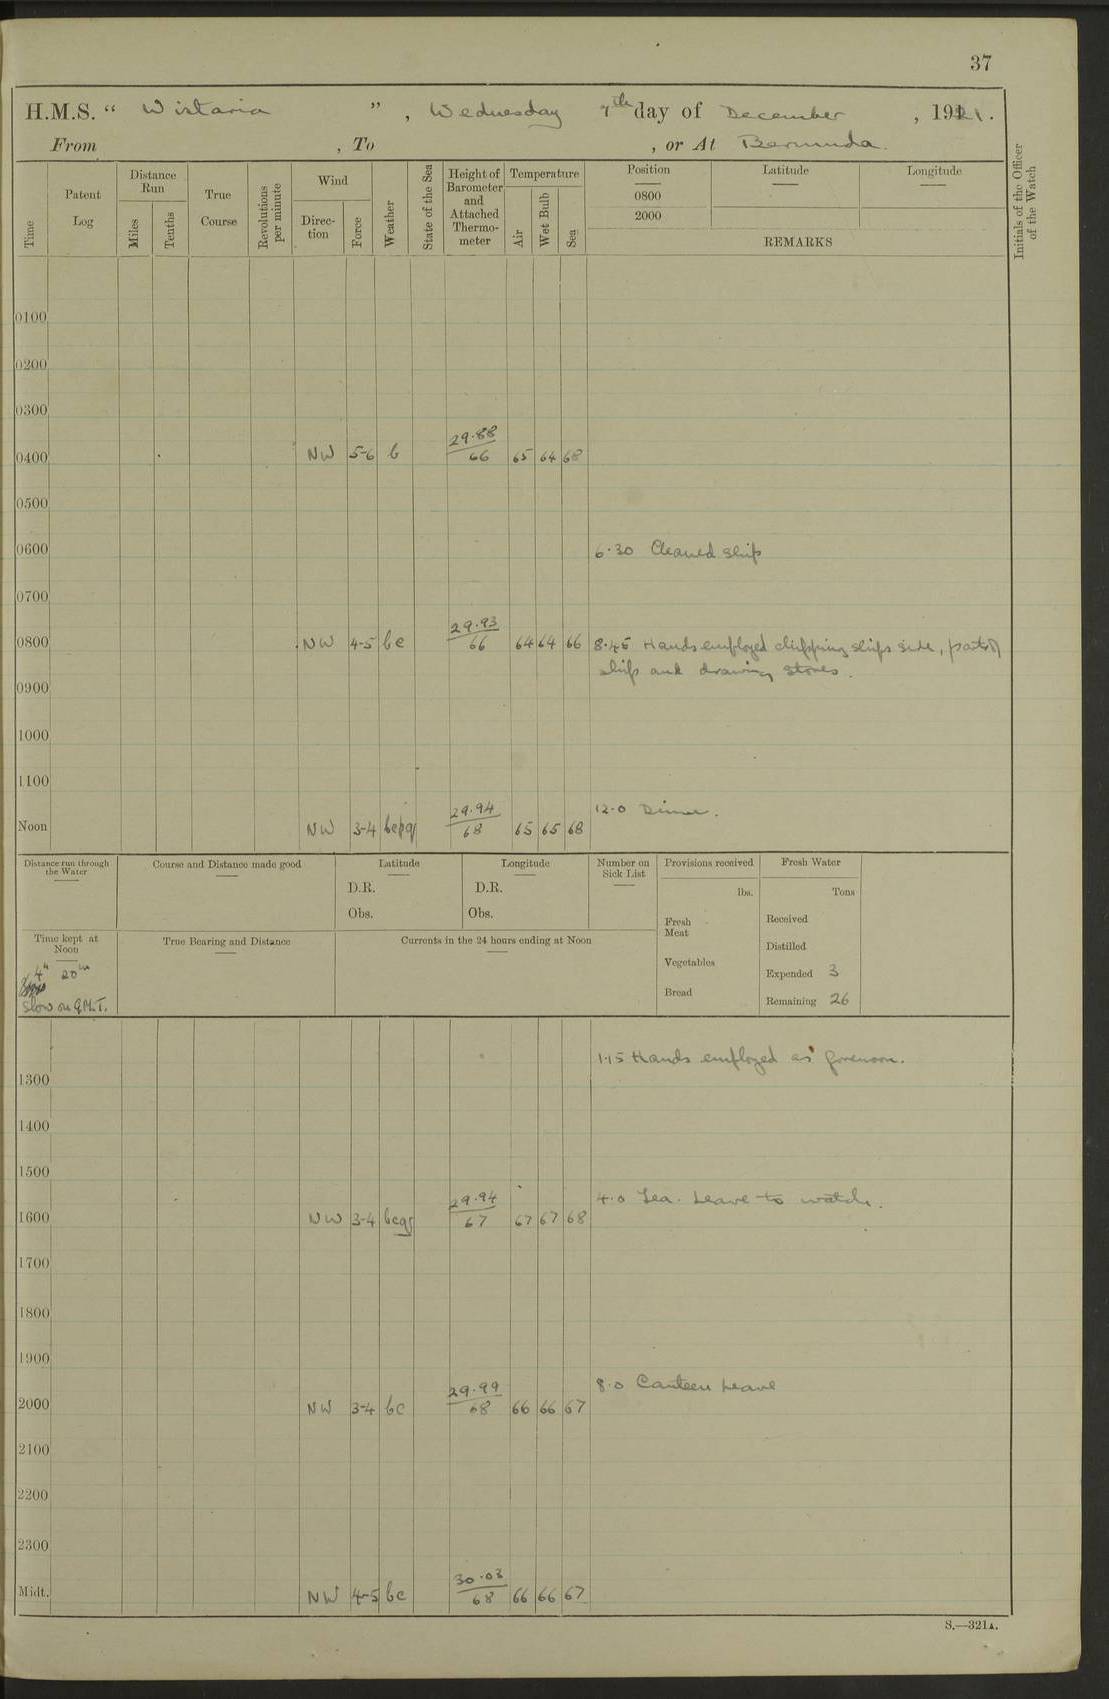 37
H.M.S. “ Wistaria ” , Wednesday 7th day of December , 1921.
From , To , or At Bermuda.
Time
Patent Log
Distance Run
Miles
Tenths
True Course
Revolutions per minute
Wind
Direc-tion
Force
Weather
State of the Sea
Height of Barometer and Attached Thermo-meter
Temperature
Air
Wet Bulb
Sea
Position
0800
2000
Latitude
Longitude
REMARKS
Initials of the Officer of the Watch
0100
0200
0300
0400 NW 5-6 b 29.88 66 65 64 68
0500
0600 6.30 Cleaned ship
0700
0800 NW 4-5 bc 29.93 66 64 64 66 8.45 Hands employed chipping ships side, parts of
ship and drawing stores.
0900
1000
1100
12.0 Dinner.
Noon NW 3-4 bcpq 29.94 68 65 65 68
Distance run through the Water
Course and Distance made good
Latitude
D.R.
Obs.
Longitude
D.R.
Obs.
Number on Sick List
Provisions received
lbs.
Fresh Meat
Vegetables
Bread
Fresh Water
Tons
Received
Distilled
Expended 3
Remaining 26
Time kept at Noon
4h 20m
slow on G.M.T.
True Bearing and Distance
Currents in the 24 hours ending at Noon
1.15 Hands employed as forenoon.
1300
1400
1500
4.0 Tea. Leave to watch.
1600 NW 3-4 bcq 29.94 67 67 67 68
1700
1800
1900
8.0 Canteen Leave
2000 NW 3-4 bc 29.99 68 66 66 67
2100
2200
2300
Midt. NW 4-5 bc 30.03 68 66 66 67
S.—321A.